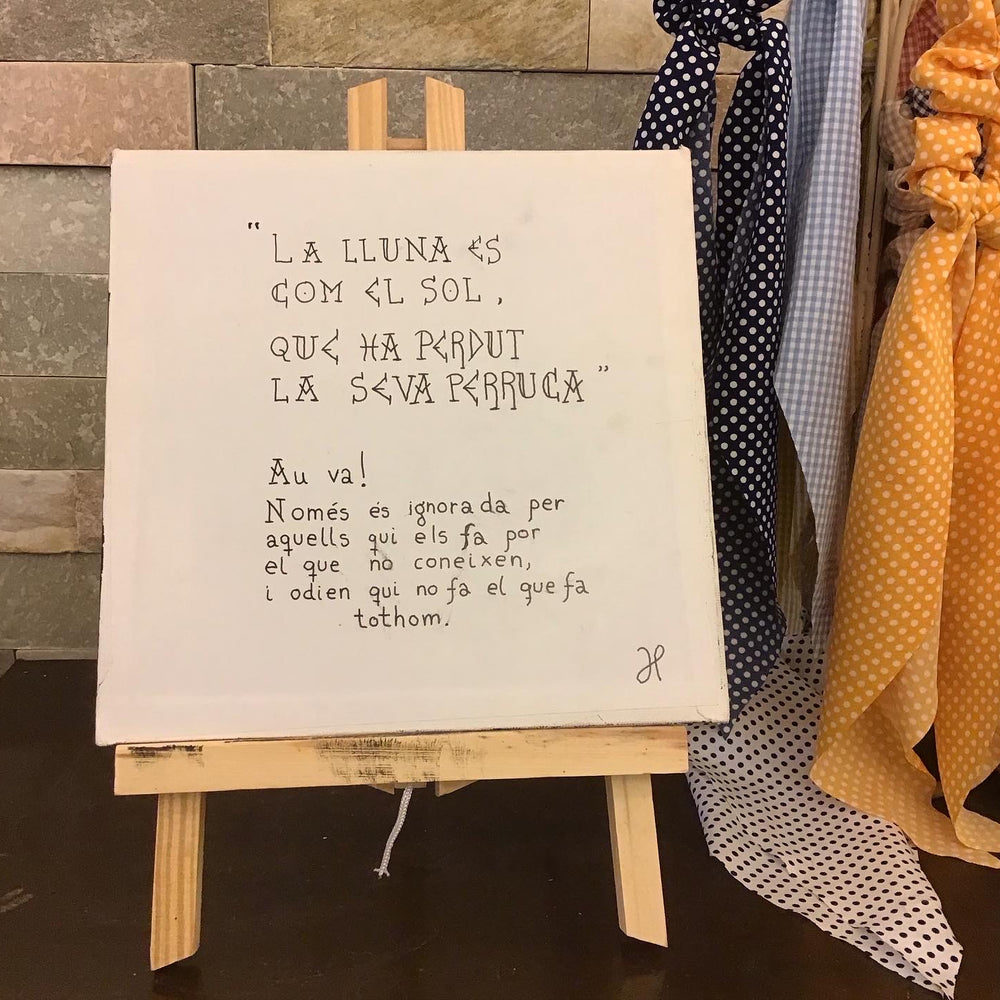 "LA LLUNA ES
COM EL SOL,
QUE HA PERDUT
LA SEVA PERRUCA"
Au va!
Només és ignorada per
aquells qui els fa por
el que no coneixen,
i odien qui no fa el que fa
tothom.
H